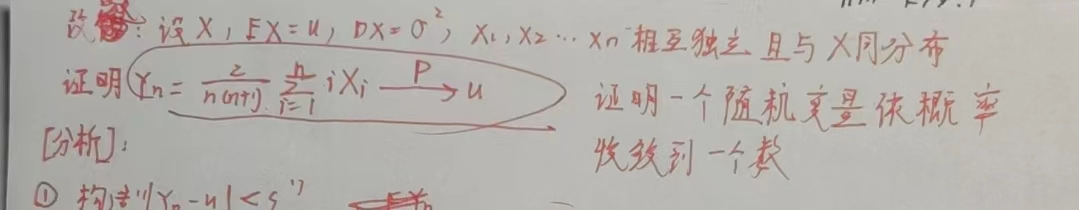 设X, EX=u, DX=σ², X₁, X₂…Xn 相互独立 且与X同分布
证明 Yn = 2/n(n+1) Σ(i=1→n) iXi —P→ u
证明一个随机变量依概率
收敛到一个数
[分析]:
① 构造"|Yn-u|<ε"